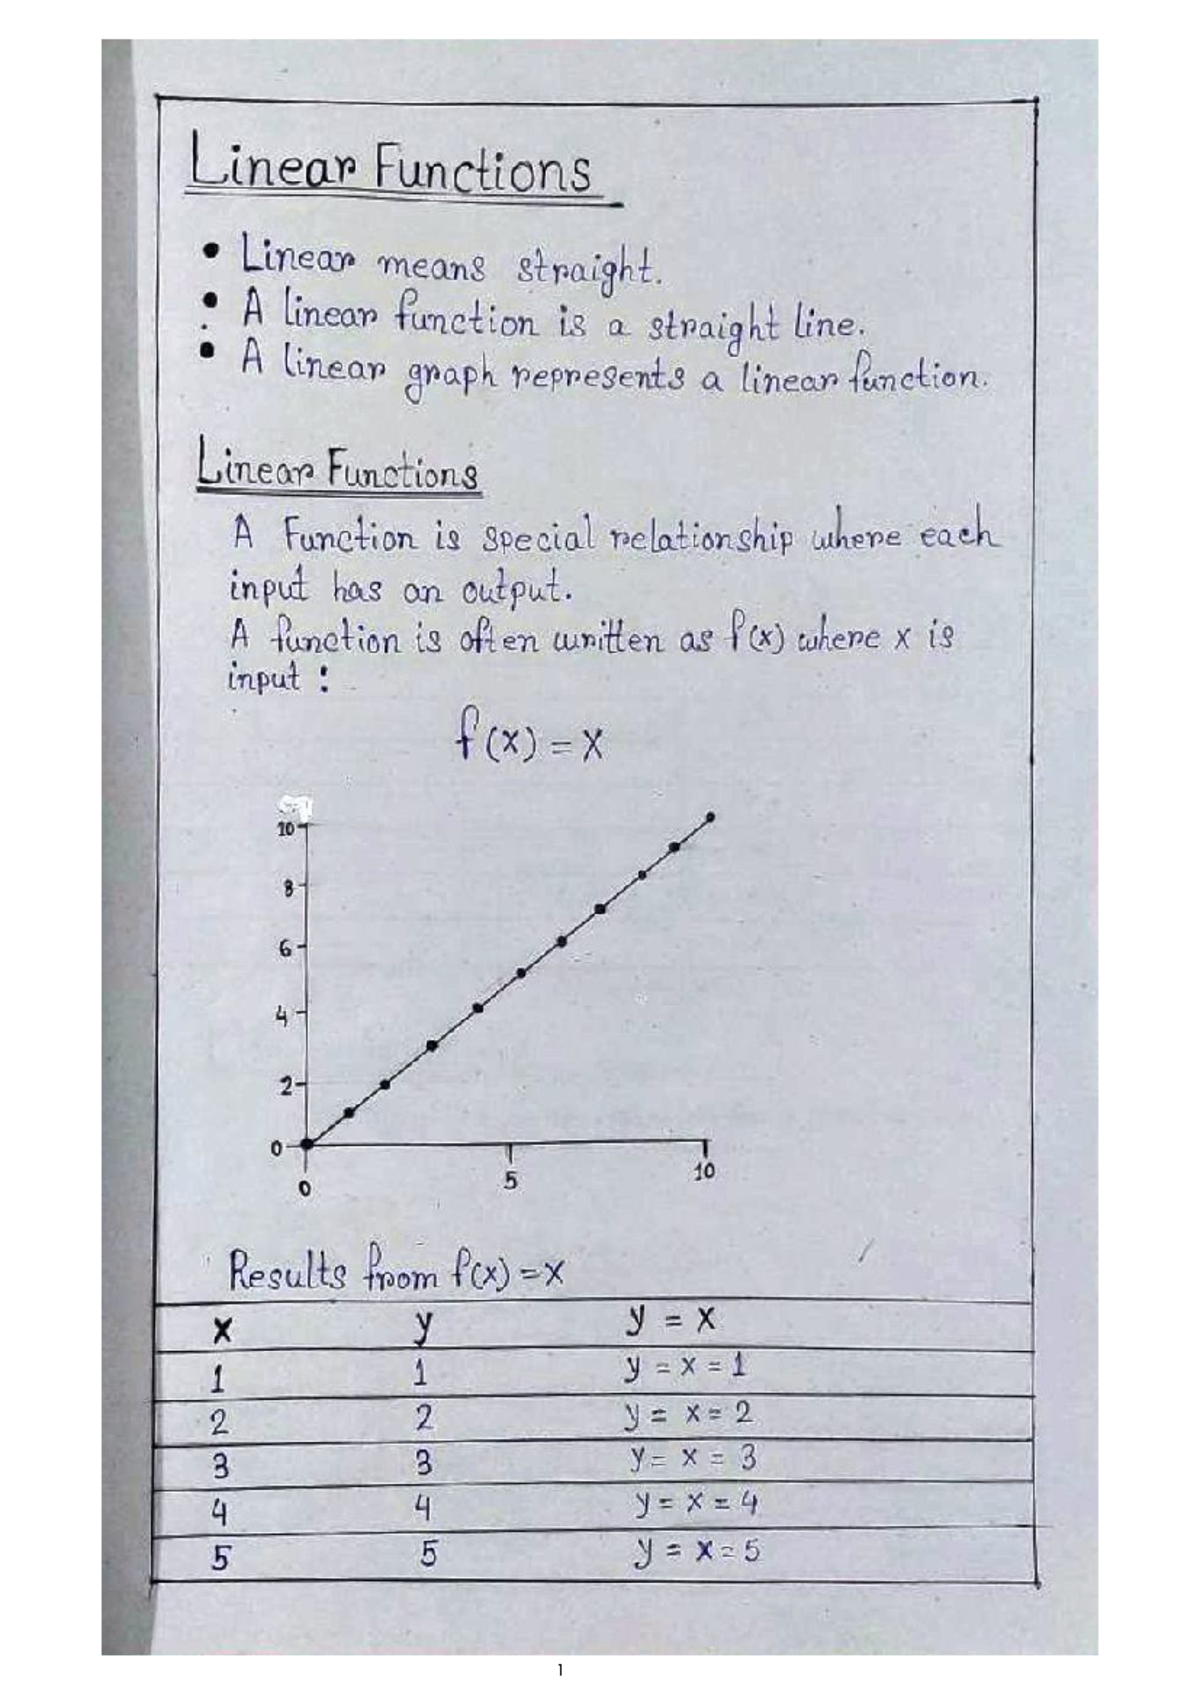 Linear Functions
• Linear means straight.
• A linear function is a straight line.
• A linear graph represents a linear function.
Linear Functions
A Function is special relationship where each
input has an output.
A function is often written as f(x) where x is
input :
f(x) = x
10
8
6
4
2
0
0 5 10
Results from f(x) = x
x y y = x
1 1 y = x = 1
2 2 y = x = 2
3 3 y = x = 3
4 4 y = x = 4
5 5 y = x = 5
1